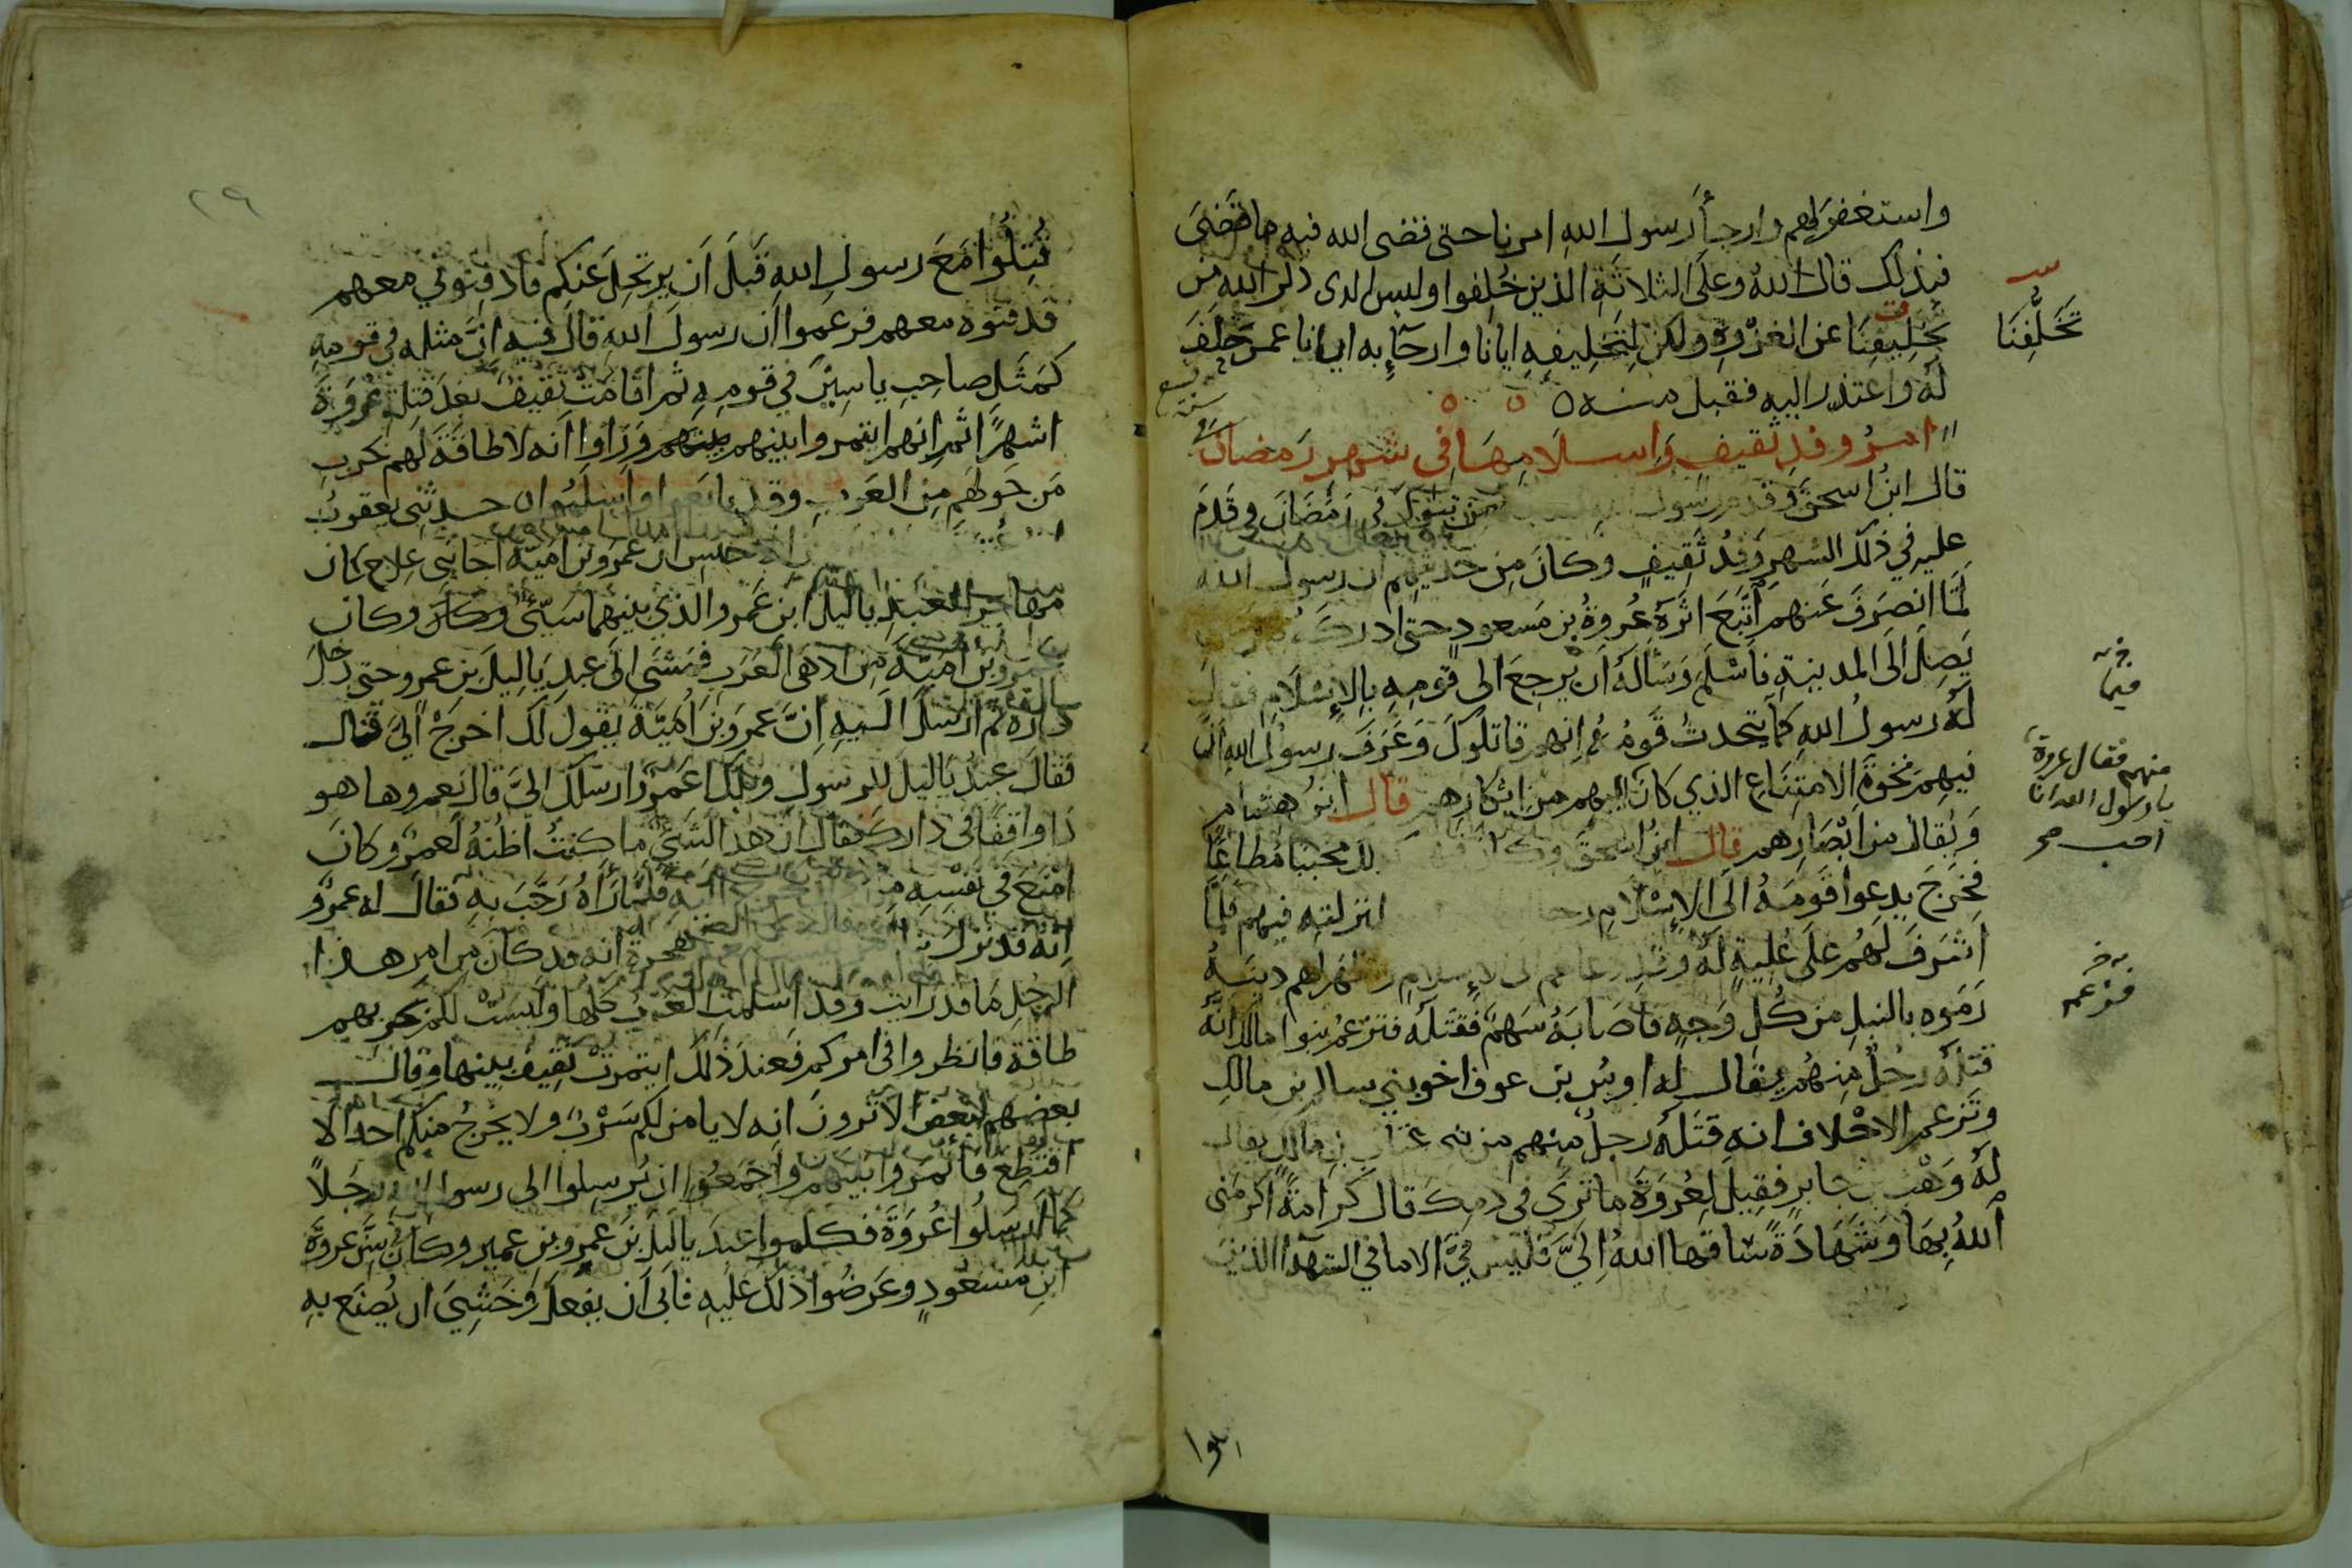 واستغفر لهم وارجأ رسول الله امرنا حتى قضى الله فيه ما قضى
فبذلك قال الله وعلى الثلاثة الذين خلفوا وليس الذى ذكر الله من
تخليفنا عن الغزوة ولكن لتخليفه ايانا وارجآيه امرنا عمن حلف
تخلفنا
له واعتذر اليه فقبل منه
امر وفد ثقيف واسلامها فى شهر رمضان
سنة تسع
قال ابن اسحق وقدم رسول الله من تبوك فى رمضان وقدم
عليه في ذلك الشهر وفد ثقيف وكان من حديثهم ان رسول الله
لما انصرف عنهم اتبع اثره عروة بن مسعود حتى ادركه
يصل الى المدينة فاسلم وساله ان يرجع الى قومه بالاسلام فقال
له رسول الله كما يتحدث قومه انهم قاتلوك وعرف رسول الله ان
فيهم نخوة الامتناع الذي كان
منهم فقال عروة
يا رسول الله انا
احب
اليهم من ابكارهم قال ابن هشام
ويقال من ابصارهم قال ابن اسحق وكان محببا مطاعا
فخرج يدعوا قومه الى الاسلام لمنزلته فيهم فلما
اشرف لهم على علية له وقد دعاهم الى الاسلام واظهر لهم دينه
رموه بالنبل من كل وجه فاصابه سهم فقتله فتزعم بنوا مالك انه
قتله رجل منهم يقال له اوس بن عوف اخو بني سالم بن مالك
وتزعم الاحلاف انه قتله رجل منهم من بنى عتاب بن مالك يقال
له وهب بن جابر فقيل لعروة ما ترى فى دمك قال كرامة اكرمنى
الله بها وشهادة ساقها الله الي فليس في الا ما في الشهدآ الذين
قتلوا
٢٩
قتلوا مع رسول الله قبل ان يرتحل عنكم فادفنوني معهم
فدفنوه معهم فزعموا ان رسول الله قال فيه ان مثله في قومه
كمثل صاحب ياسين في قومه ثم اقامت ثقيف بعد قتل عروة
اشهرا ثم انهم ايتمروا بينهم وراوا انه لا طاقة لهم بحرب
من حولهم من العرب وقد بايعوا واسلموا حدثنى يعقوب
ابن عتبة ان عمرو بن امية اخا بني علاج كان
مهاجرا لعبد ياليل ابن عمرو الذي بينهما سيئ وكان وكان
عمرو بن امية من ادهى العرب فمشى الى عبد ياليل بن عمرو حتى دخل
داره ثم ارسل اليه ان عمرو بن امية يقول لك اخرج الي قال
فقال عبد ياليل للرسول ويلك اعمرو ارسلك الي قال نعم وها هو
ذا واقفا في دارك فقال ان هذا الشئ ما كنت اظنه لعمرو كان
امنع في نفسه من ذلك فخرج اليه فلما راه رحب به فقال له عمرو
انه قد نزل بنا هجرة انه قد كان من امر هذا
الرجل ما قد رايت وقد اسلمت العرب كلها وليست لكم بحربهم
طاقة فانظروا في امركم فعند ذلك ايتمرت ثقيف بينها وقال
بعضهم لبعض الا ترون انه لا يامن لكم سرب ولا يخرج منكم احد الا
اقتطع فأتمروا بينهم واجمعوا ان يرسلوا الى رسول الله رجلا
كما ارسلوا عروة فكلموا عبد ياليل بن عمرو بن عمير وكان سن عروة
ابن مسعود وعرضوا ذلك عليه فابى ان يفعل وخشي ان يصنع به